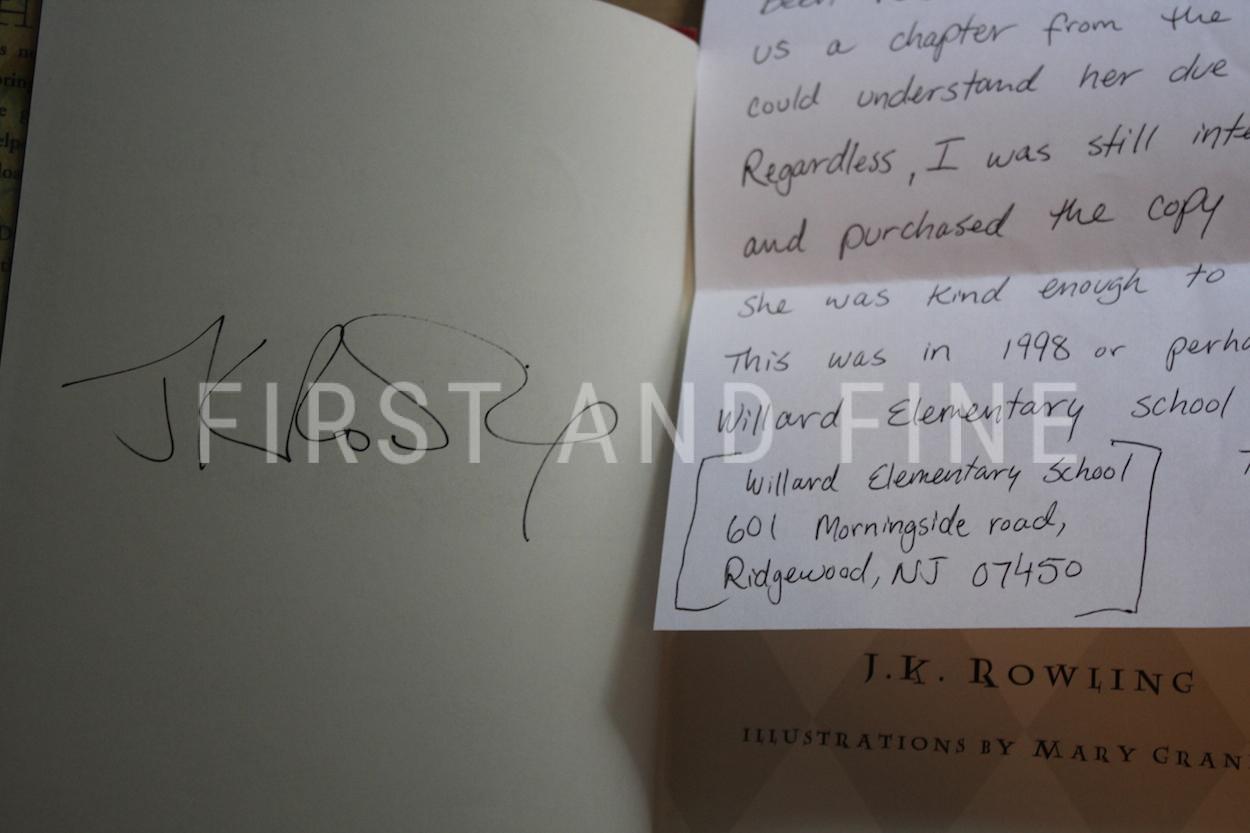 JK Rowling
us a chapter from the
could understand her due
Regardless, I was still
and purchased the copy
she was kind enough to
This was in 1998 or
Willard Elementary School
Willard Elementary School
601 Morningside road,
Ridgewood, NJ 07450
J.K. ROWLING
ILLUSTRATIONS BY MARY
FIRST AND FINE